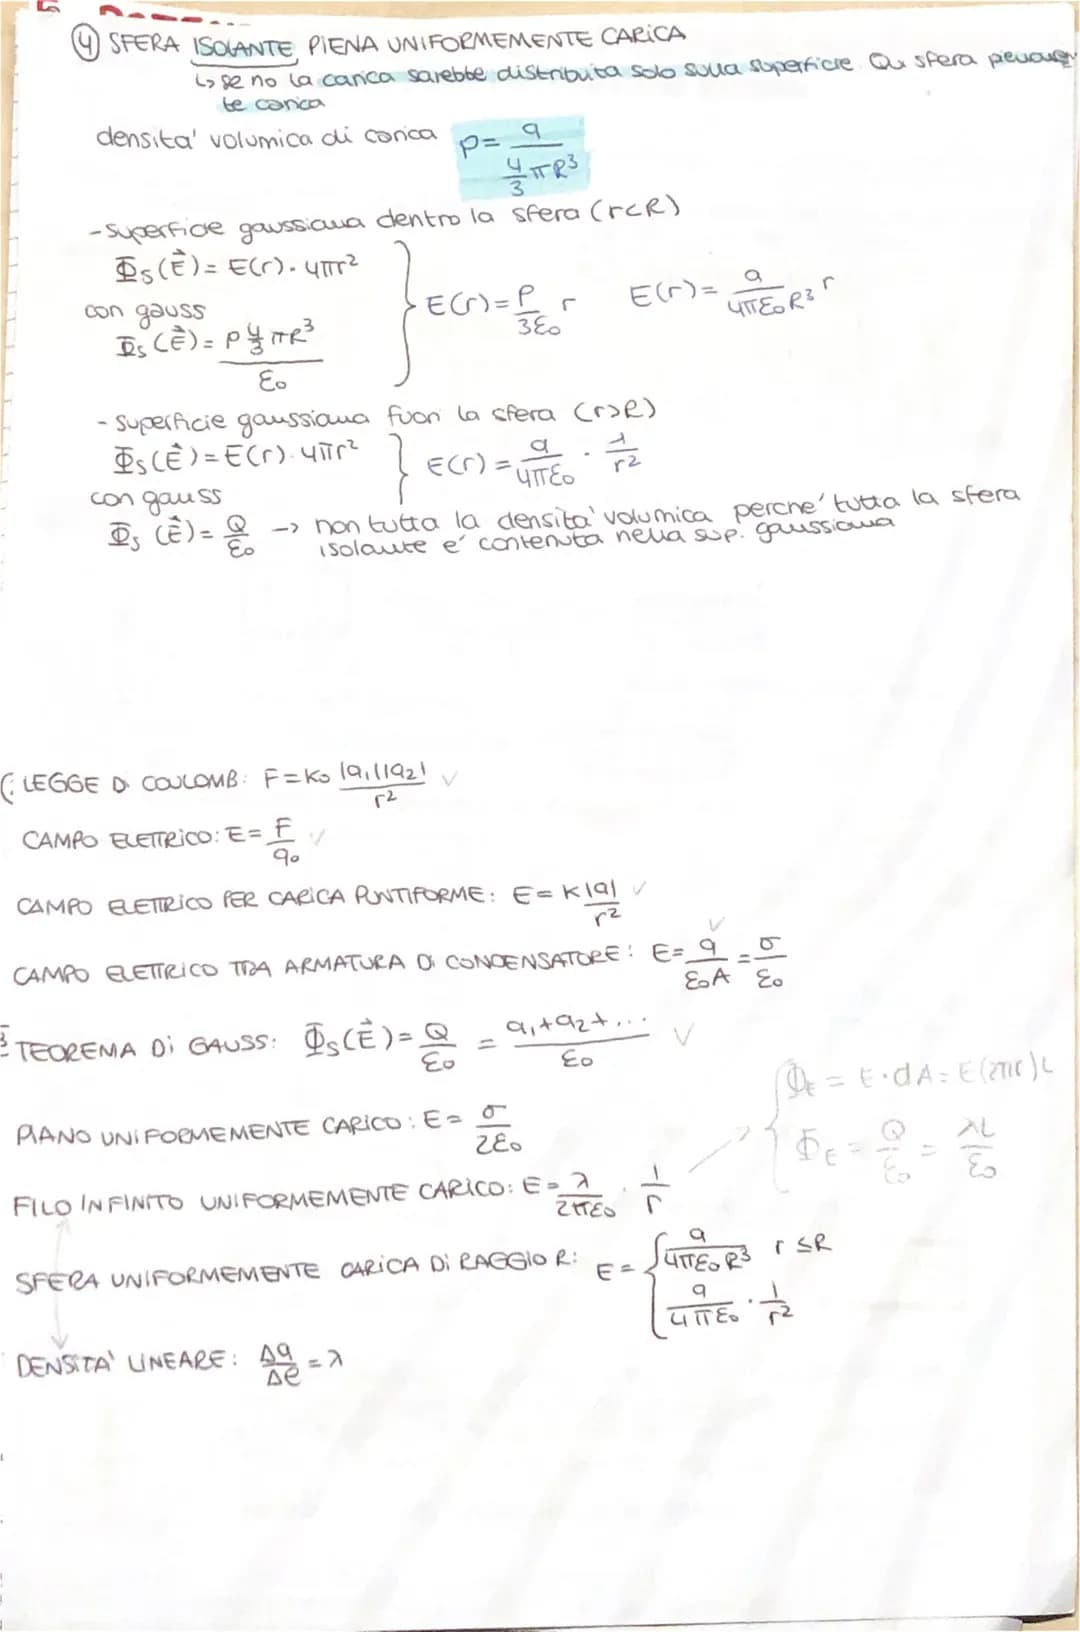 ④ SFERA ISOLANTE PIENA UNIFORMEMENTE CARICA
↳ se no la carica sarebbe distribuita solo sulla superficie. Qui sfera pienamen
te carica
densita' volumica di carica ρ = q / (4/3 πR³)
- superficie gaussiana dentro la sfera (r<R)
Φs(E⃗) = E(r) · 4πr²
con gauss
Φs(E⃗) = ρ 4/3 πR³ / ε₀
} E(r) = ρ/3ε₀ r E(r) = q/4πε₀R³ r
- superficie gaussiana fuori la sfera (r>R)
Φs(E⃗) = E(r) · 4πr² } E(r) = q/4πε₀ · 1/r²
con gauss
Φs (E⃗) = Q/ε₀ → non tutta la densita' volumica perche' tutta la sfera
isolante e' contenuta nella sup. gaussiana
LEGGE DI COULOMB: F = K₀ |q₁||q₂| / r² ✓
CAMPO ELETTRICO: E = F/q₀ ✓
CAMPO ELETTRICO PER CARICA PUNTIFORME: E = K|q| / r² ✓
CAMPO ELETTRICO TRA ARMATURA DI CONDENSATORE: E = q/ε₀A = σ/ε₀ ✓
TEOREMA Di GAUSS: Φs(E⃗) = Q/ε₀ = q₁+q₂+... / ε₀ ✓
ΦE = E·dA = E(2πr)L
PIANO UNIFORMEMENTE CARICO: E = σ/2ε₀
ΦE = Q/ε₀ = λL/ε₀
FILO INFINITO UNIFORMEMENTE CARICO: E = λ/2πε₀ · 1/r
SFERA UNIFORMEMENTE CARICA Di RAGGIO R: E = { q/4πε₀R³ r ≤ R
q/4πε₀ · 1/r²
DENSITA' LINEARE: Δq/Δe = λ